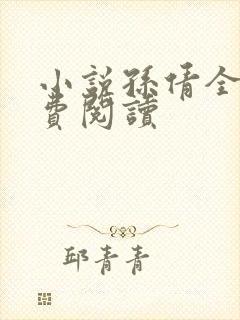 小說孫倩全
費閱讀
邱青青